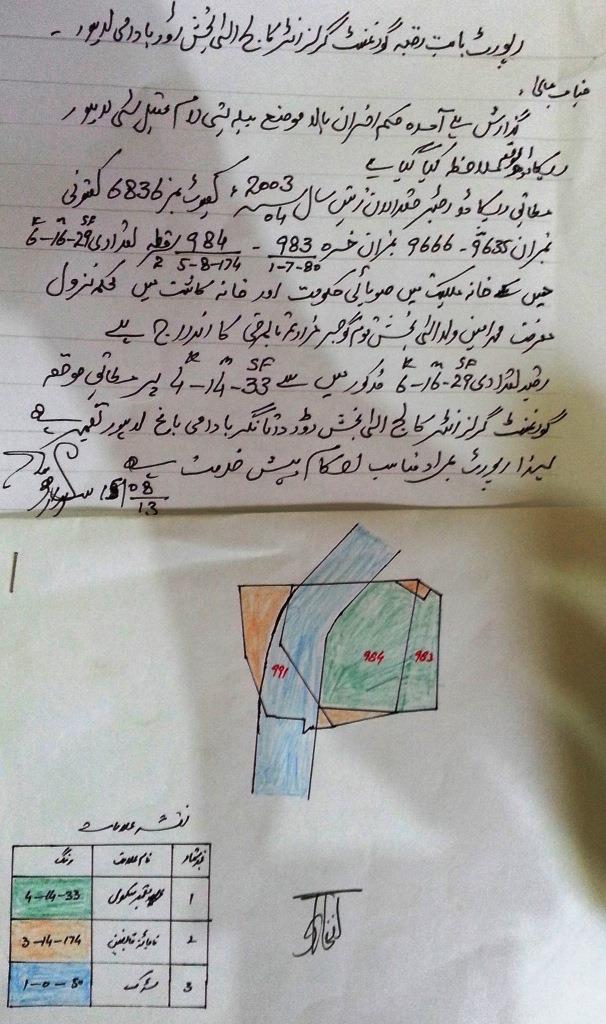 رپورٹ بابت رقبہ گورنمنٹ گرلز انٹر کالج الٰہی بخش روڈ بادامی لاہور۔
جناب عالی!
گذارش ہے آمدہ حکم افسران بالا موضع لاہور
ریکارڈ ملاحظہ کیا گیا ہے
مطابق ریکارڈ رجسٹر حقداران زمین سال 2003/04ء کھیوٹ نمبر 6836 کھتونی
نمبران 9635 - 9666 نمبران خسرہ 983/1-7-80 - 984/5-8-174 قطعہ 2 تعدادی K 6 - M 16 - SF 29
جس کے خانہ ملکیت میں صوبائی حکومت اور خانہ کاشت میں محکمہ نزول
معرفت محمد امین ولد الٰہی بخش قوم گوجر کا اندراج ہے
رقبہ تعدادی K 6 - M 16 - SF 29 مذکور میں سے K 4 - M 14 - SF 33 پر مطابق موقعہ
گورنمنٹ گرلز انٹر کالج الٰہی بخش روڈ داتا نگر بادامی باغ لاہور تعمیر ہے
لہذا رپورٹ بمراد مناسب احکام پیش خدمت ہے
08
13
991
984
983
نقشہ علامات
نمبر شمار نام علامت رنگ
1 سکول 4-14-33
2 ناجائز قابضین 3-14-174
3 سڑک 1-0-80